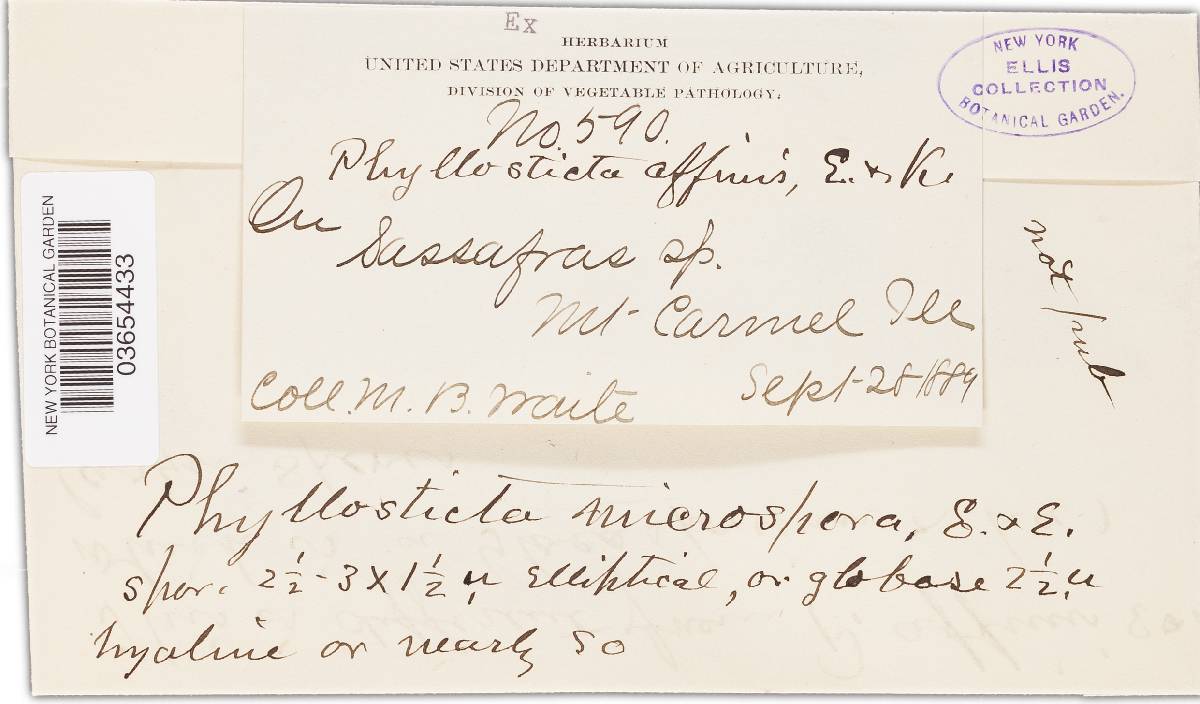 Ex
HERBARIUM
UNITED STATES DEPARTMENT OF AGRICULTURE,
DIVISION OF VEGETABLE PATHOLOGY.
NEW YORK
ELLIS
COLLECTION
BOTANICAL GARDEN.
No. 590.
Phyllosticta affinis, E. & K.
On
Sassafras sp.
Mt Carmel Ill
Coll. M. B. Waite
Sept-28-1889
not pub
NEW YORK BOTANICAL GARDEN
03654433
Phyllosticta microspora, E. & E.
spor. 2½-3 x 1½ µ, elliptical, or globose 2½ µ
hyaline or nearly so